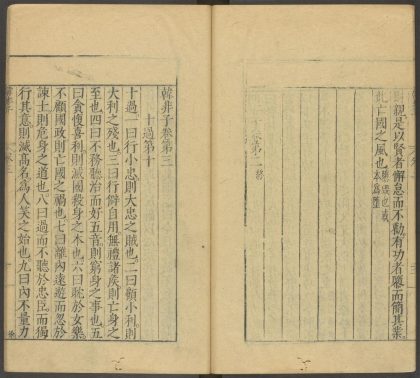 則親是以賢者懈怠而不勸有功者隳而簡其業
此亡國之風也
韓非子卷第二終
韓非子卷第三
十過第十
十過一曰行小忠則大忠之賊也二曰顧小利則
大利之殘也三曰行僻自用無禮諸侯則亡身之
至也四曰不務聽治而好五音則窮身之事也五
曰貪愎喜利則滅國殺身之本也六曰耽於女樂
不顧國政則亡國之禍也七曰離內遠遊而忽於
諫士則危身之道也八曰過而不聽於忠臣而獨
行其意則滅高名為人笑之始也九曰內不量力